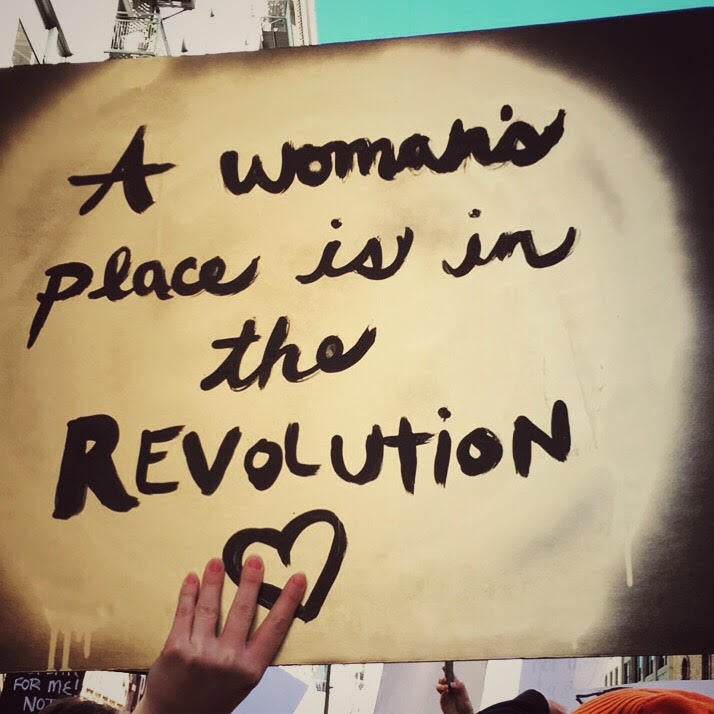 A woman's
place is in
the
REVOLUTION
FOR ME!
NOT